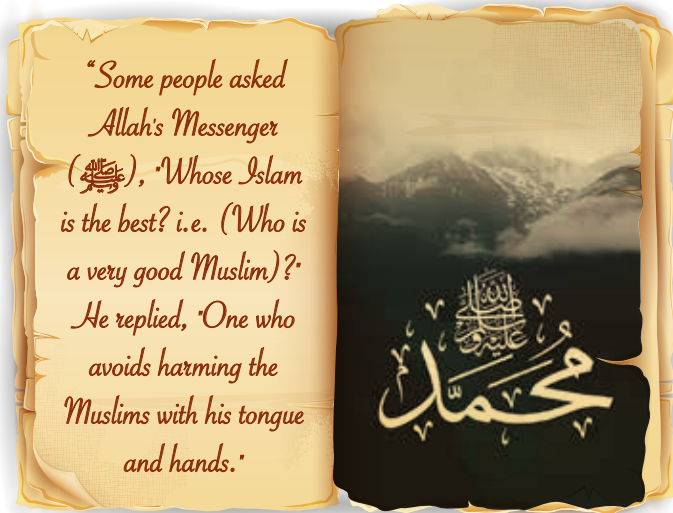 “Some people asked
Allah's Messenger
(ﷺ), "Whose Islam
is the best? i.e. (Who is
a very good Muslim)?"
He replied, "One who
avoids harming the
Muslims with his tongue
and hands."
ﷺ
محمد